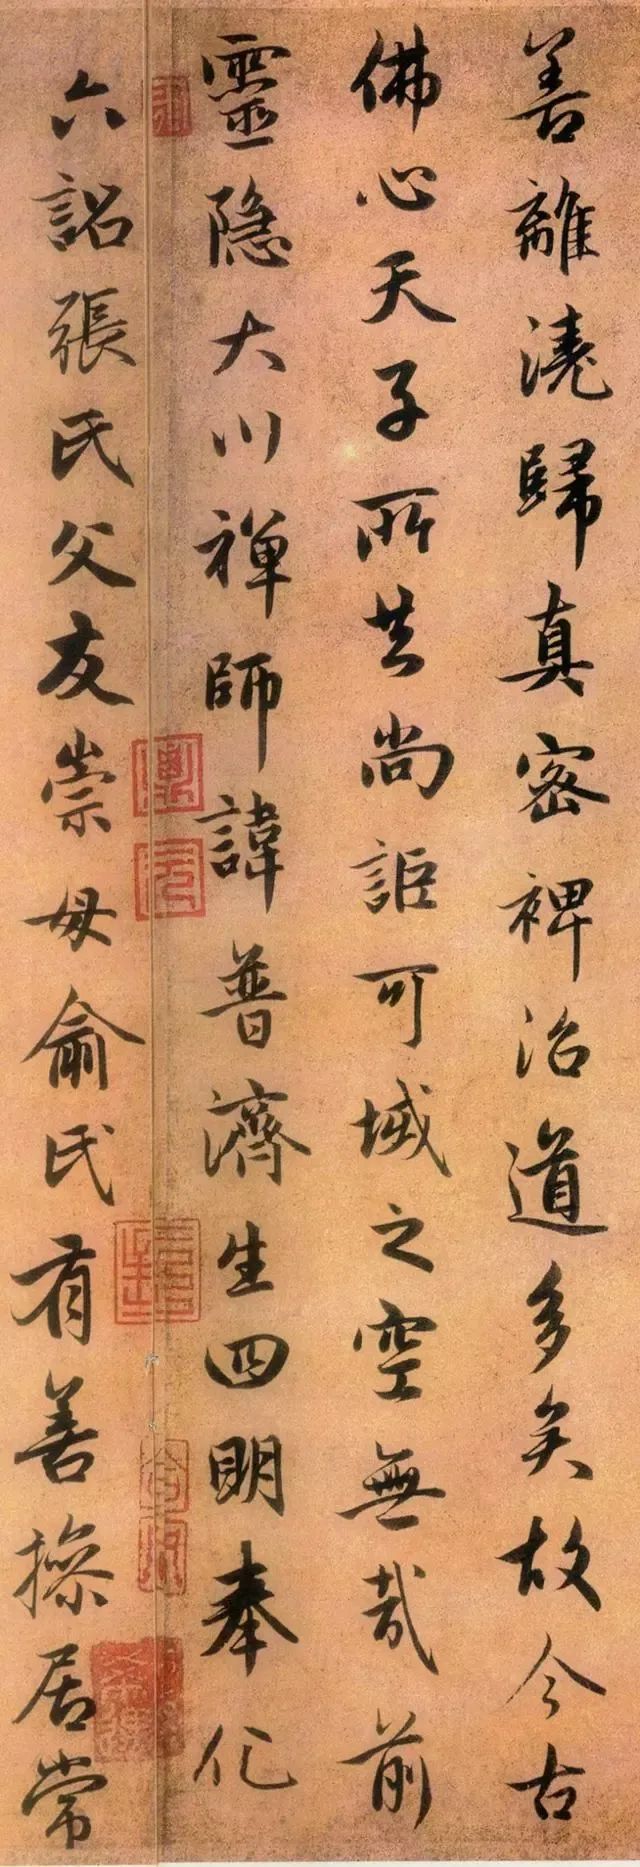 善離澆歸真密裨治道多矣故今古
佛心天子所共尚詎可城之空無哉前
靈隐大川禅師諱普濟生四明奉化
六詔張氏父友崇母俞氏有善操居常